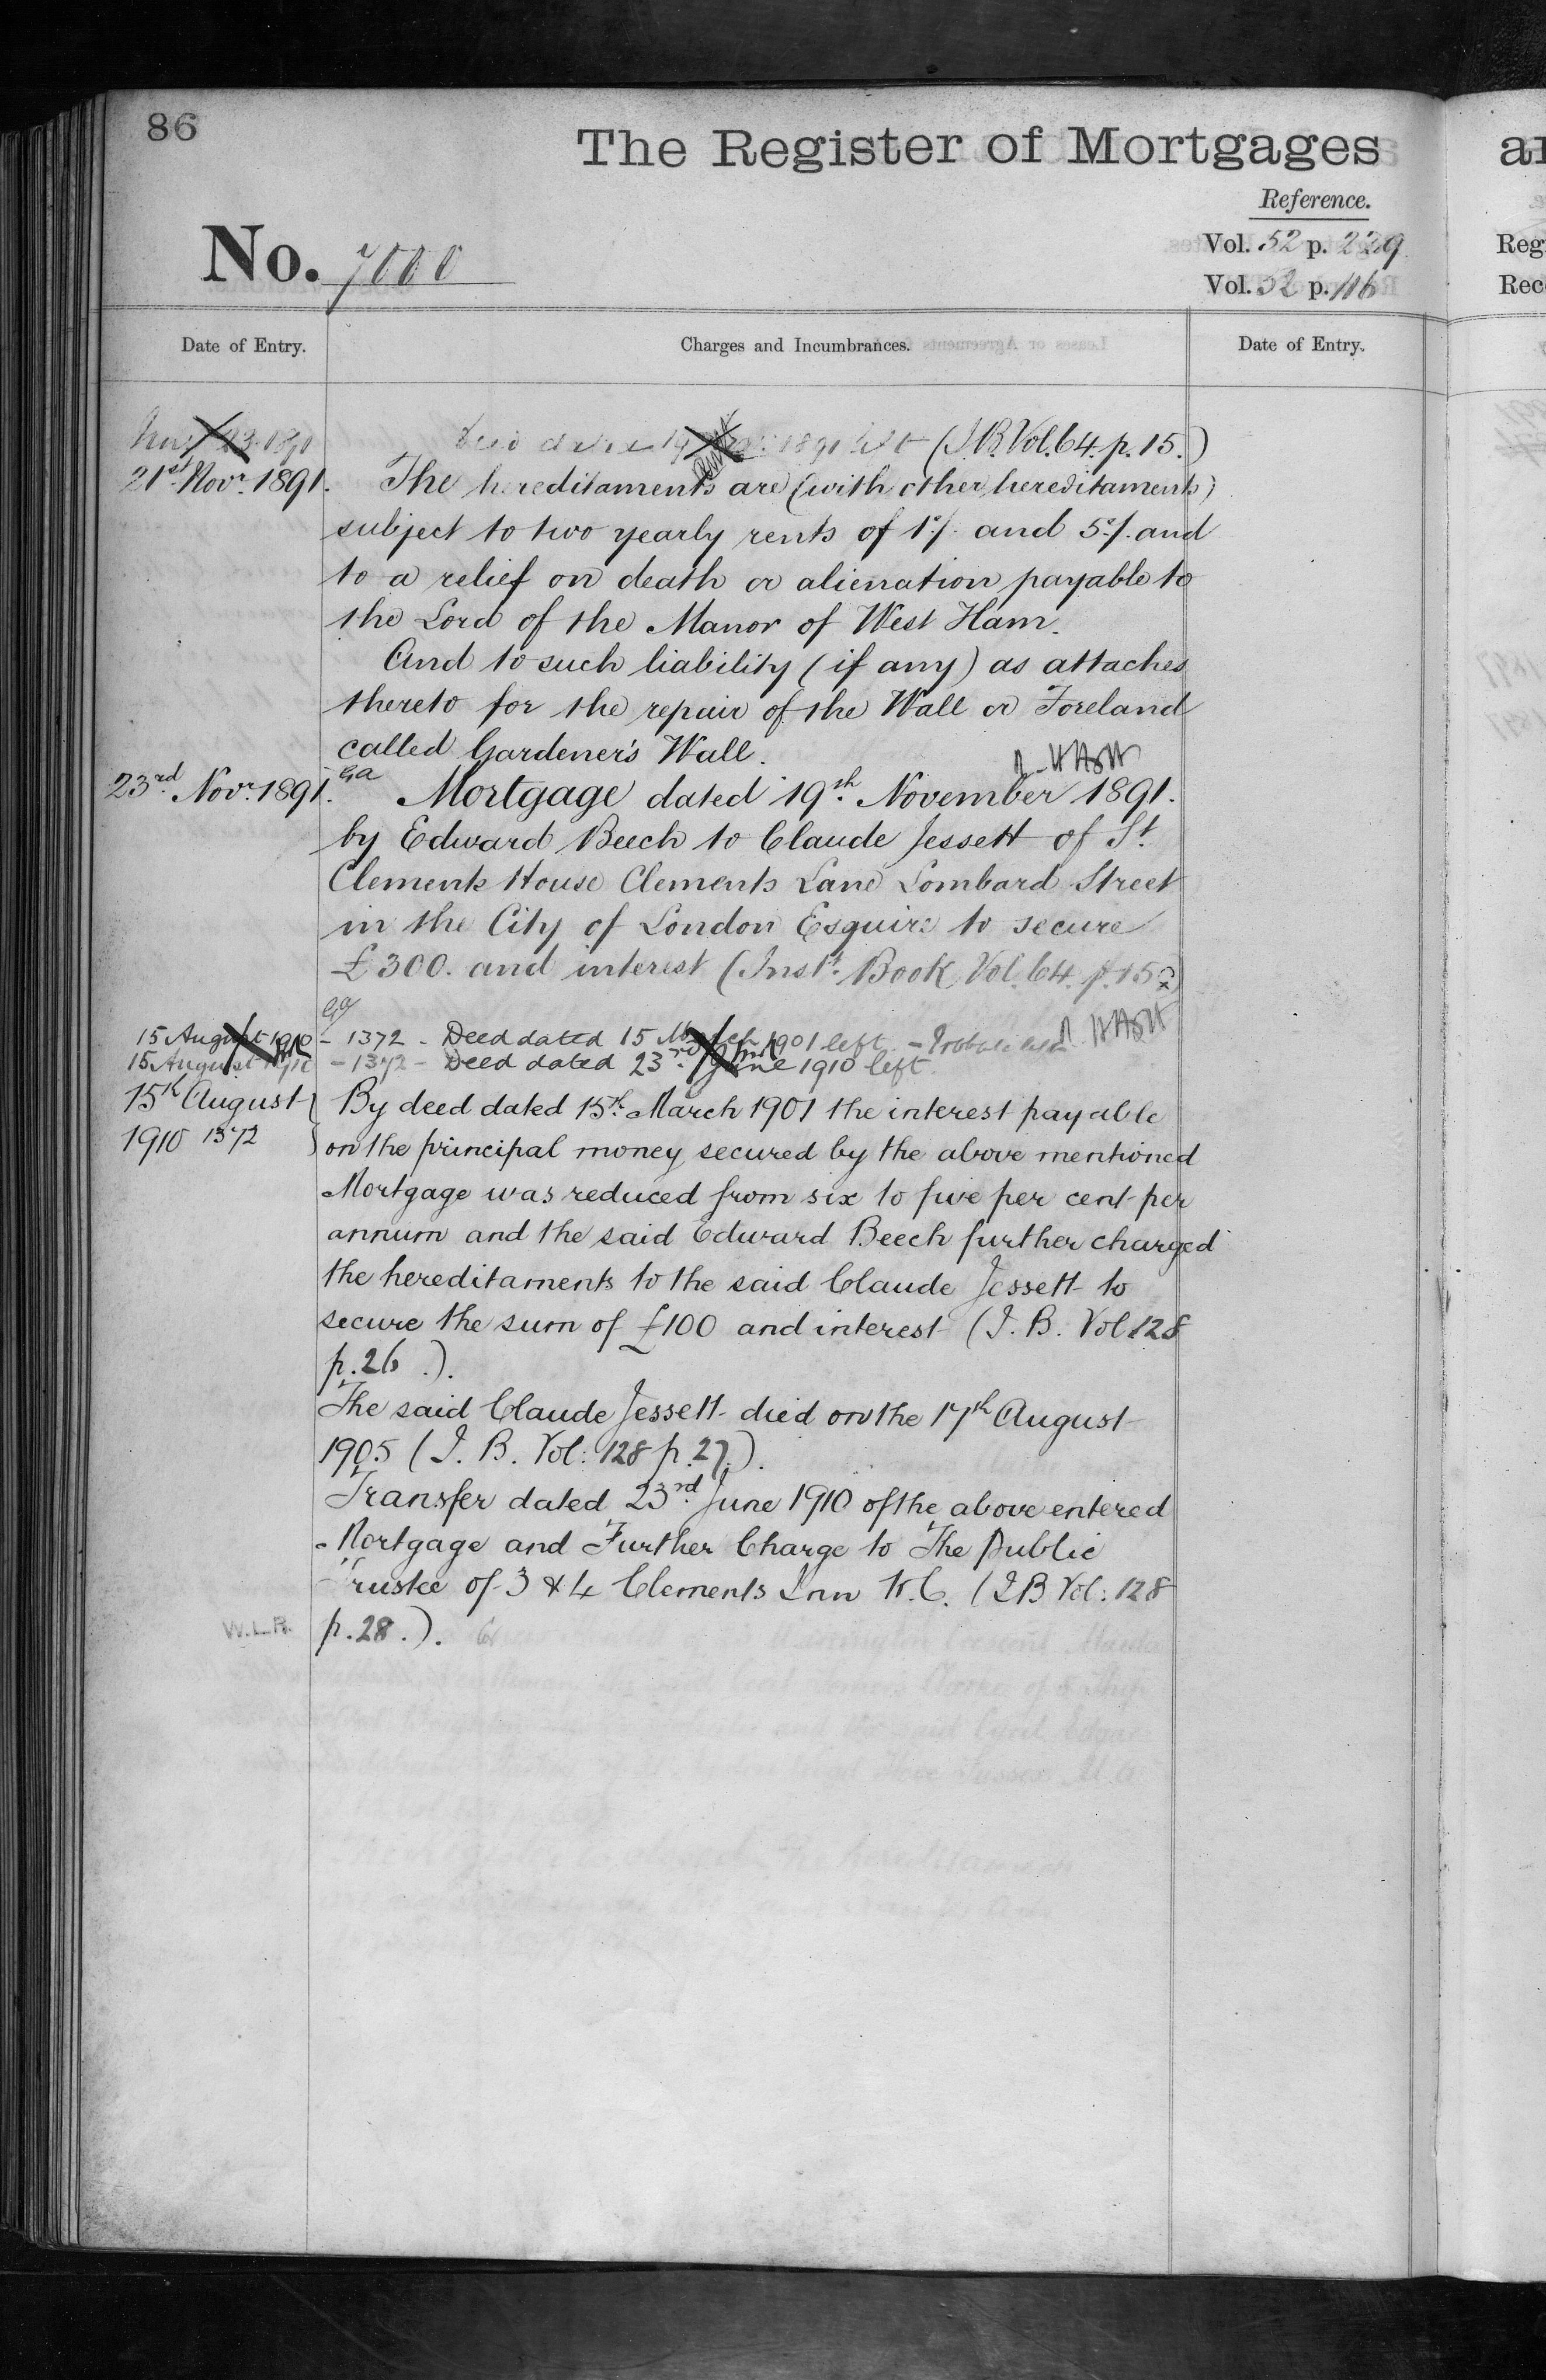 86
The Register of Mortgages
Reference.
No. 7000
Vol. 52 p. 229
Vol. 52 p. 116
Date of Entry.
Charges and Incumbrances.
Date of Entry.
Nov 23. 1891 Deed dated 19 Nov. 1891 left (I.B. Vol. 64. p. 15.)
21st Novr. 1891. The hereditaments are (with other hereditaments)
subject to two yearly rents of 1s/. and 5s/. and
to a relief on death or alienation payable to
the Lord of the Manor of West Ham.
And to such liability (if any) as attaches
thereto for the repair of the Wall or Foreland
called Gardener's Wall.
23rd Novr. 1891. Mortgage dated 19th November 1891.
by Edward Beech to Claude Jessett of St.
Clements House Clements Lane Lombard Street
in the City of London Esquire to secure
£300. and interest (Inst. Book Vol. 64. p. 15.)
15 August 1910 - 1372 - Deed dated 15 March 1901 left -
15 August 1910 - 1372 - Deed dated 23rd June 1910 left
15th August By deed dated 15th March 1901 the interest payable
1910 1372 on the principal money secured by the above mentioned
Mortgage was reduced from six to five per cent per
annum and the said Edward Beech further charged
the hereditaments to the said Claude Jessett to
secure the sum of £100 and interest (I.B. Vol 128
p. 26.).
The said Claude Jessett died on the 17th August
1905 (I.B. Vol: 128 p. 27.).
Transfer dated 23rd June 1910 of the above entered
Mortgage and Further Charge to The Public
Trustee of 3 & 4 Clements Inn W.C. (I B Vol: 128
W.L.R. p. 28.).